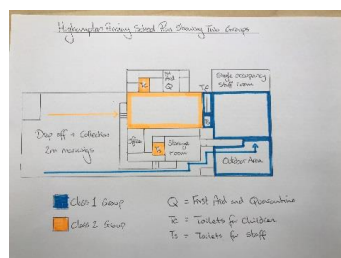 Highampton Primary School Plan Showing Two Groups
Tc
First
Aid
Q
Single occupancy
staff room
Tc
Tc
Drop off + Collection
2m markings
Office
Ts
Storage
room
Outdoor Area
Class 1 Group
Class 2 Group
Q = First Aid and Quarantine
Tc = Toilets for Children
Ts = Toilets for staff